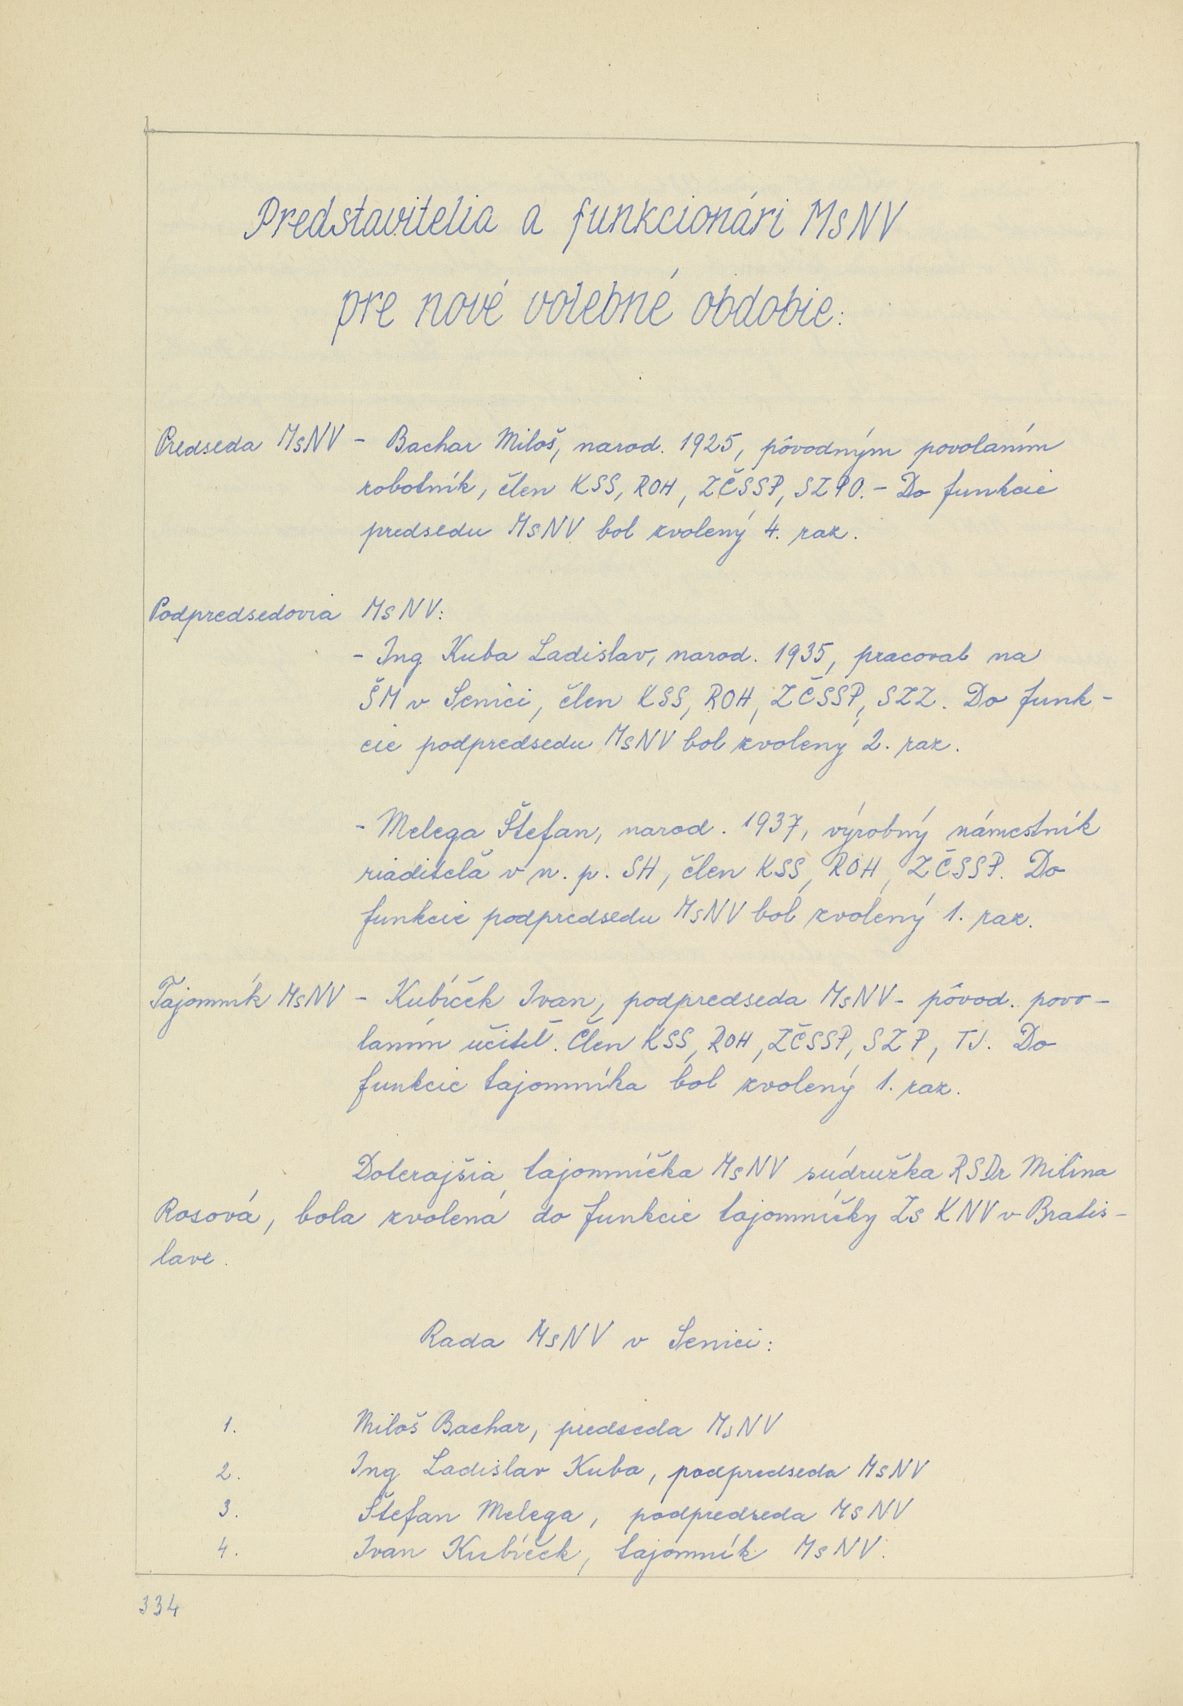 Predstavitelia a funkcionári MsNV
pre nové volebné obdobie:
Predseda MsNV - Bachar Miloš, narod. 1925, pôvodným povolaním
robotník, člen KSS, ROH, ZČSSP, SZPO. - Do funkcie
predsedu MsNV bol zvolený 4. raz.
Podpredsedovia MsNV:
- Ing Kuba Ladislav, narod. 1935, pracoval na
ŠM v Senici, člen KSS, ROH, ZČSSP, SZZ. Do funk-
cie podpredsedu MsNV bol zvolený 2. raz.
- Melega Štefan, narod. 1937, výrobný námestník
riaditeľa v n. p. SH, člen KSS, ROH, ZČSSP. Do
funkcie podpredsedu MsNV bol zvolený 1. raz.
Tajomník MsNV - Kubíček Ivan, podpredseda MsNV - pôvod. povo-
laním učiteľ. Člen KSS, ROH, ZČSSP, SZP, TJ. Do
funkcie tajomníka bol zvolený 1. raz.
Doterajšia tajomníčka MsNV súdružka RSDr Milina
Rosová, bola zvolená do funkcie tajomníčky Zs KNV v Bratis-
lave.
Rada MsNV v Senici:
1. Miloš Bachar, predseda MsNV
2. Ing Ladislav Kuba, podpredseda MsNV
3. Štefan Melega, podpredseda MsNV
4. Ivan Kubíček, tajomník MsNV.
334